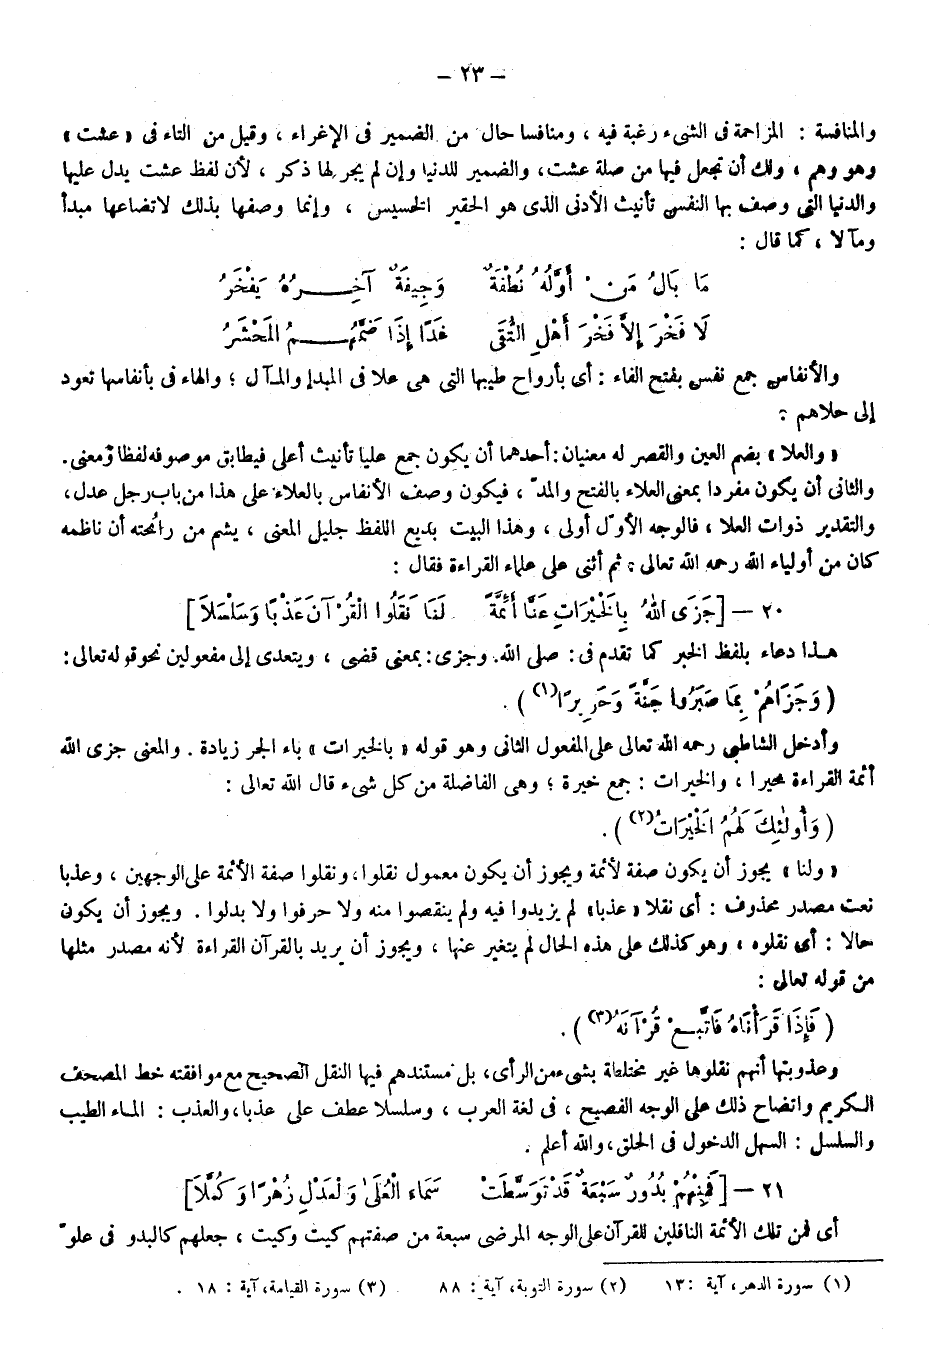 – ٢٣ –
والمنافسة : المزاحمة فى الشىء رغبة فيه ، ومنافسا حال من الضمير فى الإغراء ، وقيل من التاء فى « عشت »
وهو وهم ، ولك أن تجعل فيها من صلة عشت، والضمير للدنيا وإن لم يجر لها ذكر ، لأن لفظ عشت يدل عليها
والدنيا التى وصف بها النفس تأنيث الأدنى الذى هو الحقير الخسيس ، وإنما وصفها بذلك لاتضاعها مبدأ
ومآلا ، كما قال :
مَا بَالُ مَنْ أَوَّلُهُ نُطْفَةٌ وَجِيفَةٌ آخِرُهُ يَفْخَرُ
لَا فَخْرَ إِلاَّ فَخْرَ أَهْلِ التُّقَى غَدًا إِذَا ضَمَّهُمُ المَحْشَرُ
والأنفاس جمع نفس بفتح الفاء : أى بأرواح طيبها التى هى علا فى المبدإ والمآل ؛ والهاء فى بأنفاسها تعود
إلى حلاهم ؛
« والعلا » بضم العين والقصر له معنيان: أحدهما أن يكون جمع عليا تأنيث أعلى فيطابق موصوفه لفظا ومعنى.
والثانى أن يكون مفردا بمعنى العلاء بالفتح والمدّ ، فيكون وصف الأنفاس بالعلاء على هذا من باب رجل عدل،
والتقدير ذوات العلا ، فالوجه الأوّل أولى ، وهذا البيت بديع اللفظ جليل المعنى ، يشم من رائحته أن ناظمه
كان من أولياء الله رحمه الله تعالى ؛ ثم أثنى على علماء القراءة فقال :
٢٠ – [جَزَى اللهُ بِالْخَيْرَاتِ عَنَّا أَئِمَّةً لَنَا نَقَلُوا الْقُرْآنَ عَذْبًا وَسَلْسَلَا]
هذا دعاء بلفظ الخبر كما تقدم فى : صلى الله. وجزى: بمعنى قضى ، ويتعدى إلى مفعولين نحو قوله تعالى:
( وَجَزَاهُمْ بِمَا صَبَرُوا جَنَّةً وَحَرِيرًا(١) ) .
وأدخل الشاطبى رحمه الله تعالى على المفعول الثانى وهو قوله « بالخيرات » باء الجر زيادة . والمعنى جزى الله
أئمة القراءة محيرا ، والخيرات : جمع خيرة ؛ وهى الفاضلة من كل شىء قال الله تعالى :
( وَأُولَئِكَ لَهُمُ الْخَيْرَاتُ(٢) ) .
« ولنا » يجوز أن يكون صفة لأئمة ويجوز أن يكون معمول نقلوا، ونقلوا صفة الأئمة على الوجهين ، وعذبا
نعت مصدر محذوف : أى نقلا « عذبا» لم يزيدوا فيه ولم ينقصوا منه ولا حرفوا ولا بدلوا . ويجوز أن يكون
حالا : أى نقلوه ، وهو كذلك على هذه الحال لم يتغير عنها ، ويجوز أن يريد بالقرآن القراءة لأنه مصدر مثلها
من قوله تعالى :
( فَإِذَا قَرَأْنَاهُ فَاتَّبِعْ قُرْآنَهُ(٣) ) .
وعذوبتها أنهم نقلوها غير مختلطة بشىء من الرأى، بل مستندهم فيها النقل الصحيح مع موافقته خط المصحف
الكريم واتضاح ذلك على الوجه الفصيح ، فى لغة العرب ، وسلسلا عطف على عذبا، والعذب : الماء الطيب
والسلسل : السهل الدخول فى الحلق، والله أعلم .
٢١ – [فَمِنْهُمْ بُدُورٌ سَبْعَةٌ قَدْ تَوَسَّطَتْ سَمَاءَ الْعُلَىٰ وَالْعَدْلِ زُهْرًا وَكُمَّلَا]
أى فمن تلك الأئمة الناقلين للقرآن على الوجه المرضى سبعة من صفتهم كيت وكيت ، جعلهم كالبدو فى علوّ
(١) سورة الدهر، آية : ١٣ (٢) سورة التوبة، آية : ٨٨ (٣) سورة القيامة، آية : ١٨ .